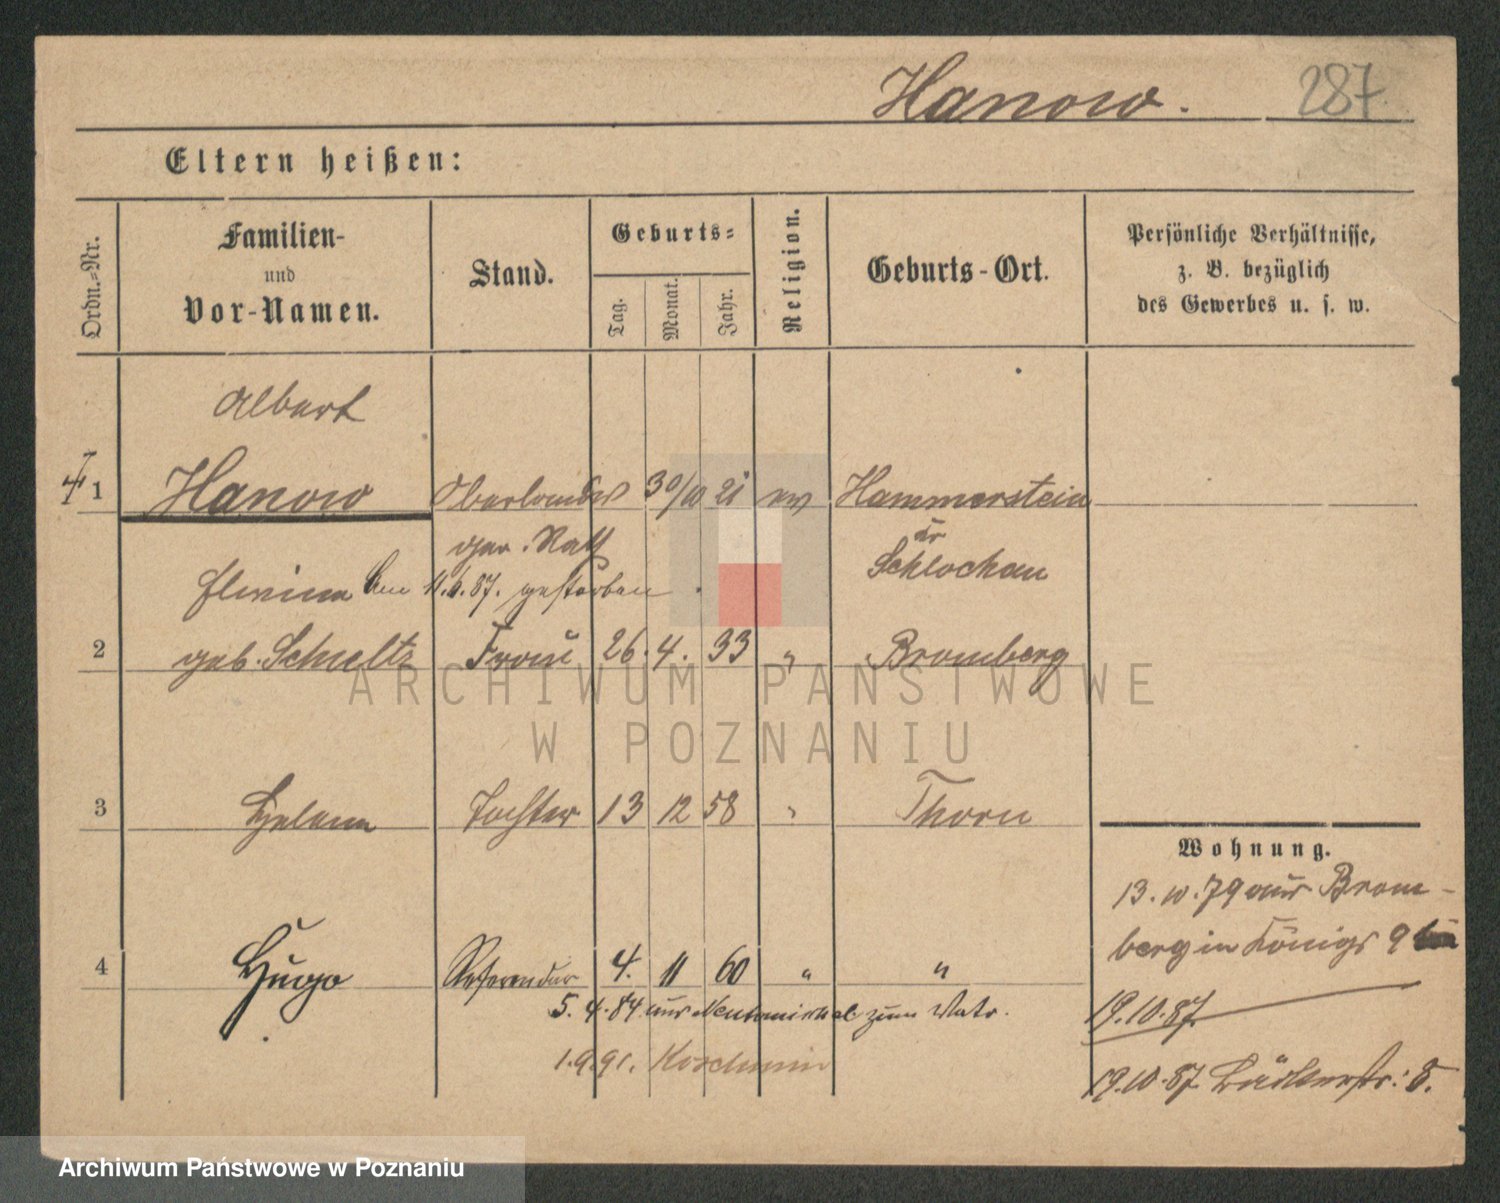 Hanow. 287
Eltern heißen:
Ordn.-Nr.
Familien-
und
Vor-Namen.
Stand.
Geburts-
Tag.
Monat.
Jahr.
Religion.
Geburts-Ort.
Persönliche Verhältnisse,
z. B. bezüglich
des Gewerbes u. s. w.
Albert
1 Hanow 30/10 21 ev Hammerstein
ger. Rath Kr
Schlochau
gestorben
2 geb. Schultz Frau 26. 4. 33 " Bromberg
3 Helene Tochter 13 12 58 " Thorn
Wohnung.
13. 10. 79 aus Brom-
berg in Königs 9
4 Hugo Referendar 4. 11 60 " "
5. 4. 84 aus zum Vater.
19.10.87
1.9.91. Koschmin
19.10.87 Bäckerstr: 8.
ARCHIWUM PAŃSTWOWE
W POZNANIU
Archiwum Państwowe w Poznaniu